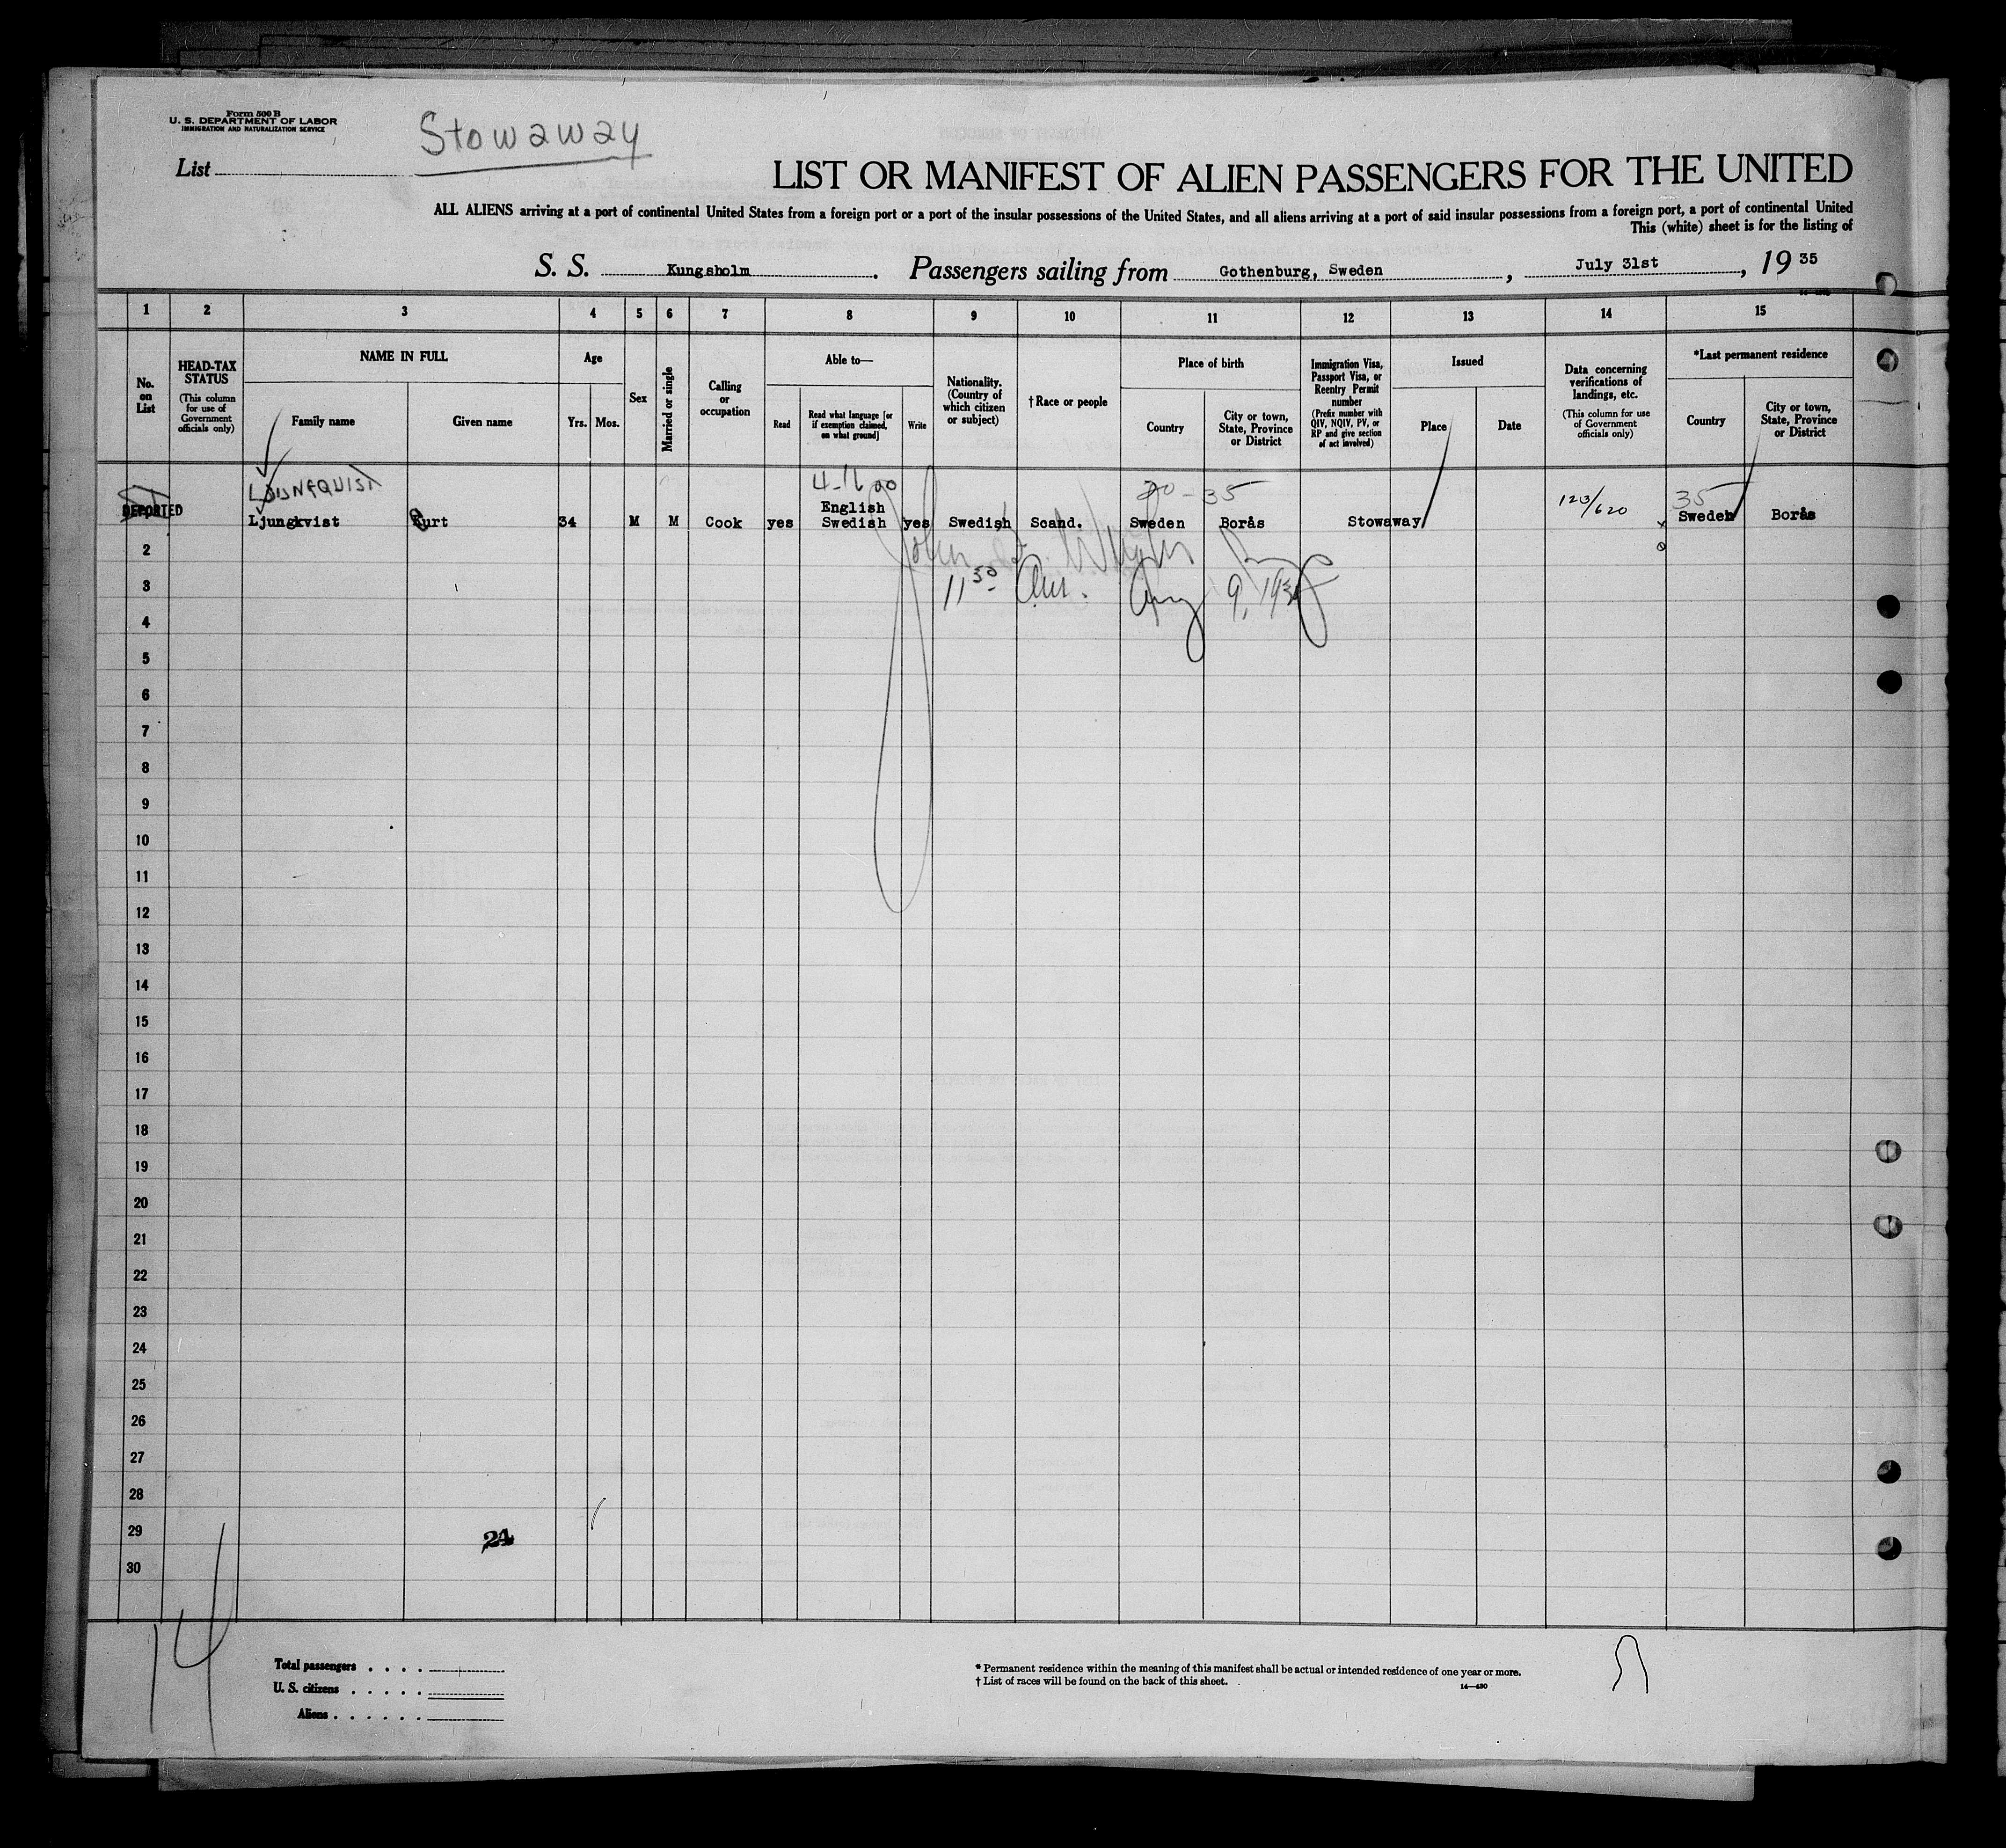 Form 500 B
U. S. DEPARTMENT OF LABOR
IMMIGRATION AND NATURALIZATION SERVICE
Stowaway
List
LIST OR MANIFEST OF ALIEN PASSENGERS FOR THE UNITED
ALL ALIENS arriving at a port of continental United States from a foreign port or a port of the insular possessions of the United States, and all aliens arriving at a port of said insular possessions from a foreign port, a port of continental United
This (white) sheet is for the listing of
S. S. Kungsholm. Passengers sailing from Gothenburg, Sweden, July 31st, 19 35
1 2 3 4 5 6 7 8 9 10 11 12 13 14 15
No. on List
HEAD-TAX STATUS (This column for use of Government officials only)
NAME IN FULL
Family name Given name
Age
Yrs. Mos.
Sex
Married or single
Calling or occupation
Able to—
Read
Read what language [or if exemption claimed, on what ground]
Write
Nationality. (Country of which citizen or subject)
†Race or people
Place of birth
Country
City or town, State, Province or District
Immigration Visa, Passport Visa, or Reentry Permit number (Prefix number with QIV, NQIV, PV, or RP and give section of act involved)
Issued
Place Date
Data concerning verifications of landings, etc. (This column for use of Government officials only)
*Last permanent residence
Country
City or town, State, Province or District
LJUNGQUIST 35 123/620 35
DEPORTED
English
Ljungkvist Kurt 34 M M Cook yes Swedish yes Swedish Scand. Sweden Borås Stowaway Sweden Borås
2
3 11 30 Am. Aug 9, 1935
4
5
6
7
8
9
10
11
12
13
14
15
16
17
18
19
20
21
22
23
24
25
26
27
28
29 24
30
14
Total passengers . . . .
U. S. citizens . . . . .
Aliens . . . . . .
* Permanent residence within the meaning of this manifest shall be actual or intended residence of one year or more.
† List of races will be found on the back of this sheet.
14—430